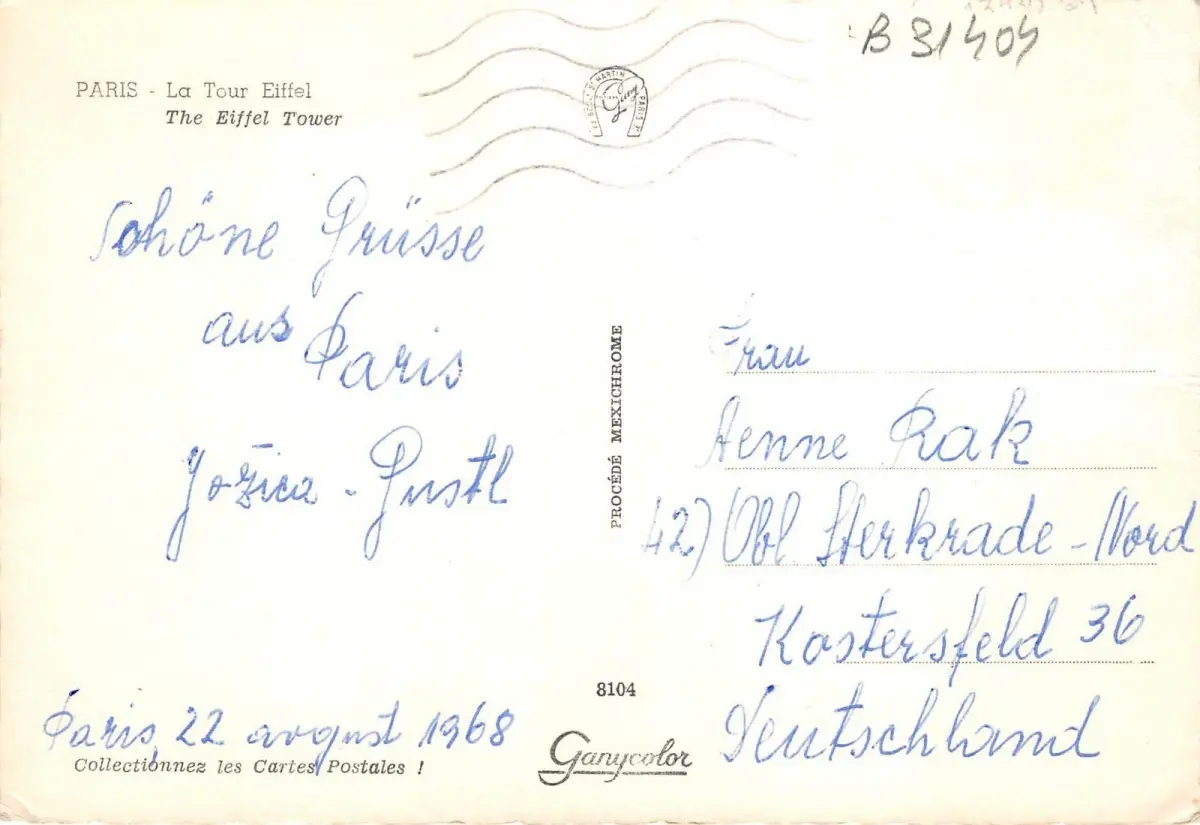 B 31404
PARIS - La Tour Eiffel
The Eiffel Tower
Schöne Grüsse
aus Paris
Jožica - Gustl
Paris, 22 avgust 1968
Collectionnez les Cartes Postales !
PROCÉDÉ MEXICHROME
8104
Ganycolor
Frau
Aenne Rak
42) Obl Sterkrade - Nord
Kostersfeld 36
Deutschland